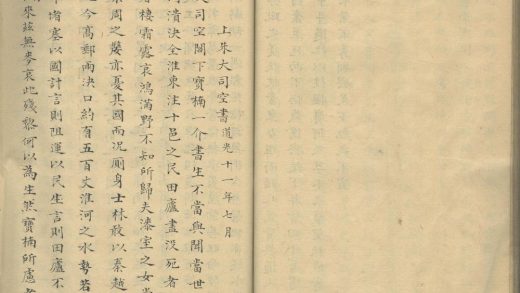 上朱大司空書道光十一年七月
大司空閣下寶楠一介書生不當與聞當世
潰決全淮東注十邑之民田廬盡沒死者
棲霜露哀鴻滿野不知所歸夫漆室之女尚
宗周之嫠亦憂其國而況厠身士林敢以秦越
之今高郵兩決口約有五百丈淮河之水勢若
堵塞以國計言則阻運以民生言則田廬不
來茲無麥哀此殘黎何以為生然寶楠所慮者